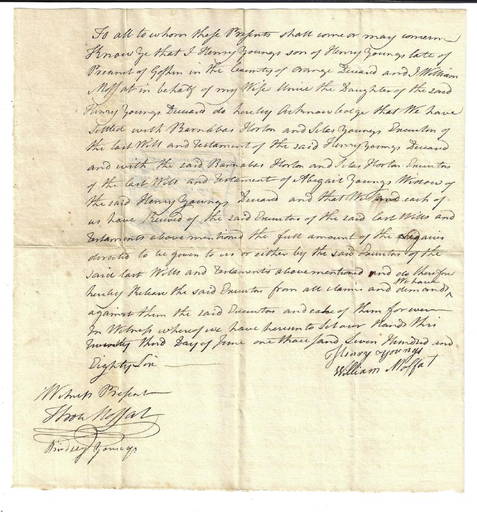 To all to whom these Presents shall come or may concern
Know ye that I Henry Youngs son of Henry Youngs late of
Precinct of Goshen in the County of Orange Deceasd and I William
Moffat in behalf of my Wife the Daughter of the said
Henry Youngs Deceasd do hereby Acknowledge that We have
Settled with Barnabas Horton and Silas Youngs Executors of
the last Will and Testament of the said Henry Youngs Deceasd
and with the said Barnabas Horton and Silas Horton Executors
of the last Will and Testament of Abigail Youngs Widow of
the said Henry Youngs Deceasd and that We and each of
us have Received of the said Executors of the said last Wills and
Testaments above mentioned the full amount of the Legacies
directed to be given to us or either by the said Executors of the
said last Wills and Testaments above mentioned and do therefore
hereby Release the said Executors from all claims and demands We have
against them the said Executors and each of them for ever
In Witness whereof we have hereunto set our Hands this
Twenty third Day of June one thousand Seven Hundred and
Eighty Six
Henry Youngs
William Moffat
Witness Present
Thos Moffat
Youngs